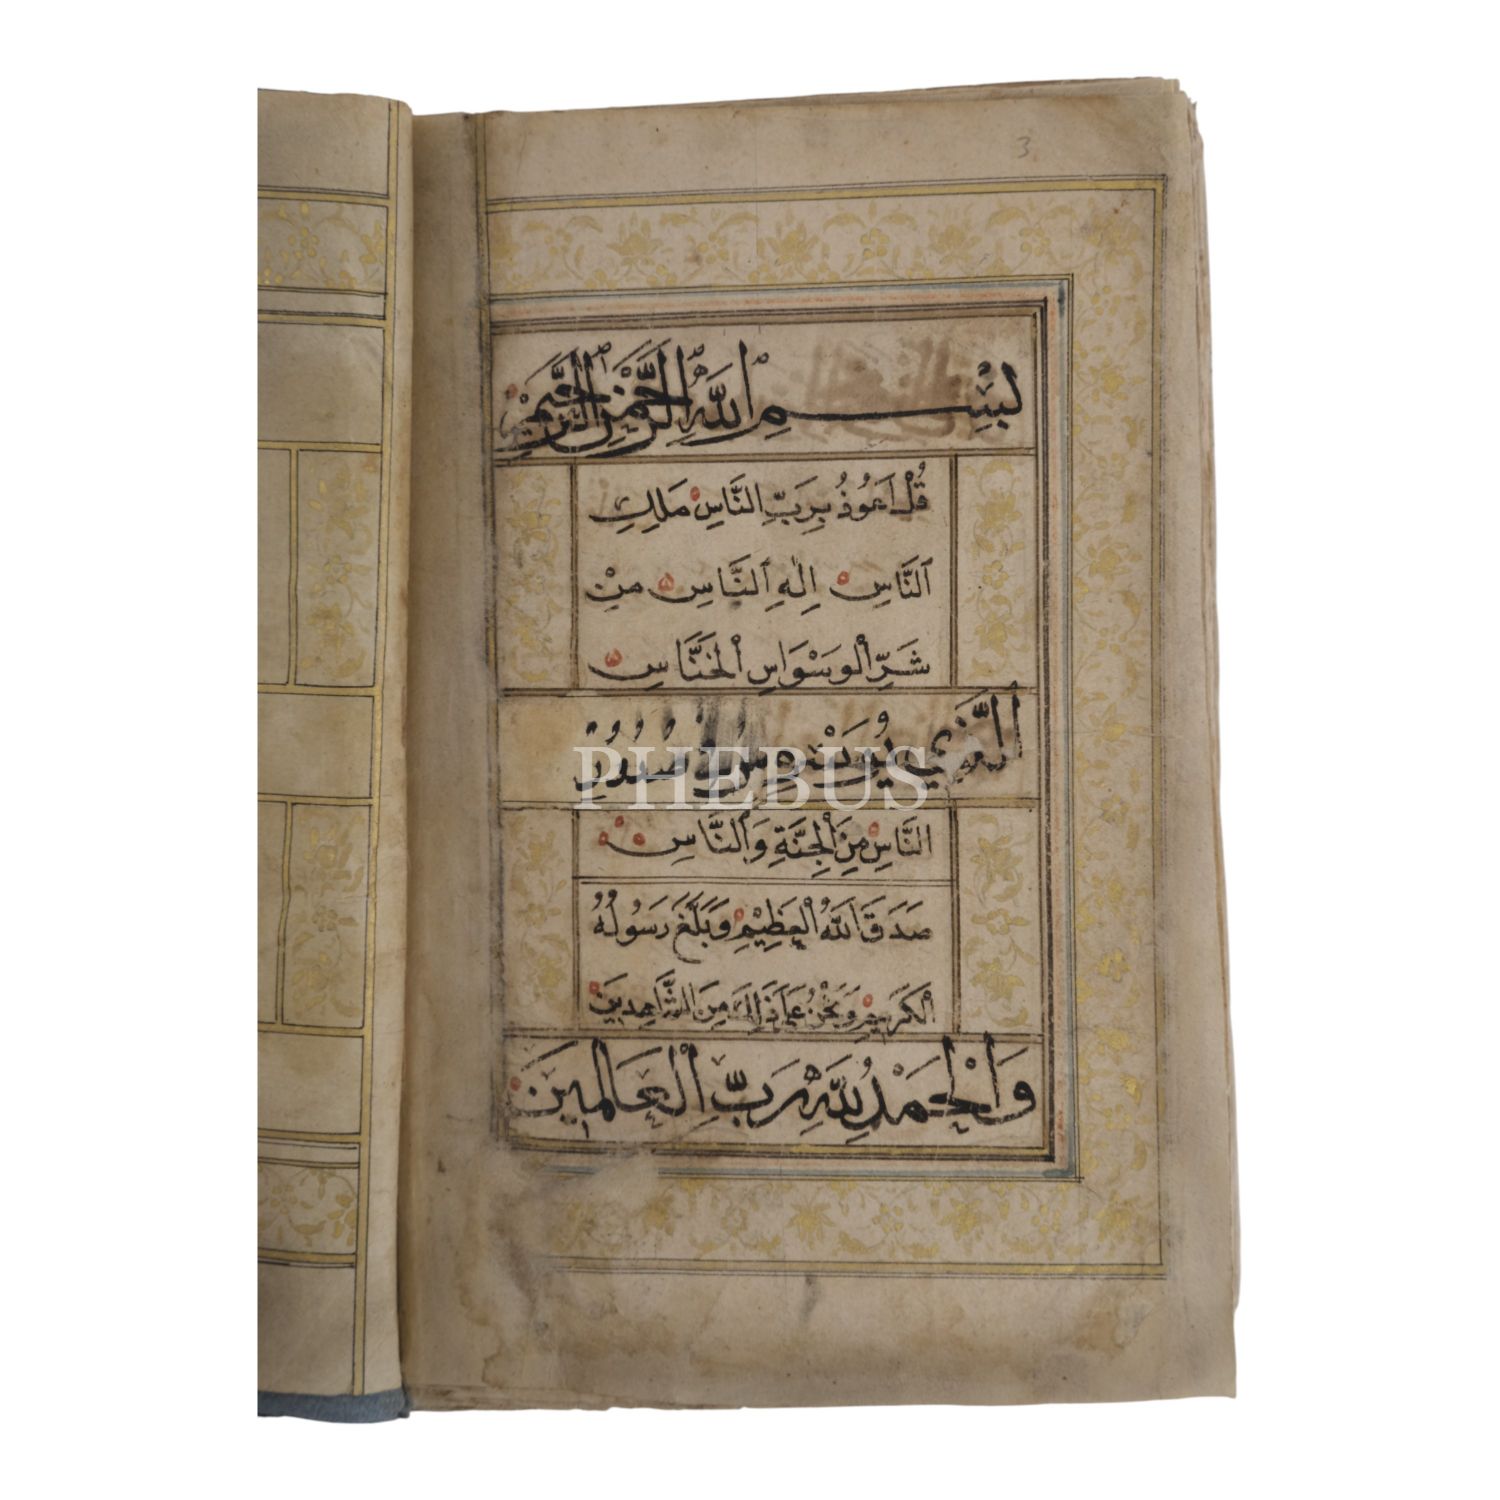 3
بِسْمِ اللّٰهِ الرَّحْمٰنِ الرَّحِيْمِ
قُلْ اَعُوْذُ بِرَبِّ النَّاسِ مَلِكِ
النَّاسِ اِلٰهِ النَّاسِ مِنْ
شَرِّ الْوَسْوَاسِ الْخَنَّاسِ
الَّذِي يُوَسْوِسُ فِي صُدُورِ
PHEBUS
النَّاسِ مِنَ الْجِنَّةِ وَالنَّاسِ
صَدَقَ اللّٰهُ الْعَظِيْمِ وَبَلَّغَ رَسُولُهُ
الْكَرِيمِ وَنَحْنُ عَلَى ذٰلِكَ مِنَ الشَّاهِدِيِنَ
وَالْحَمْدُ لِلّٰهِ رَبِّ الْعَالَمِينَ